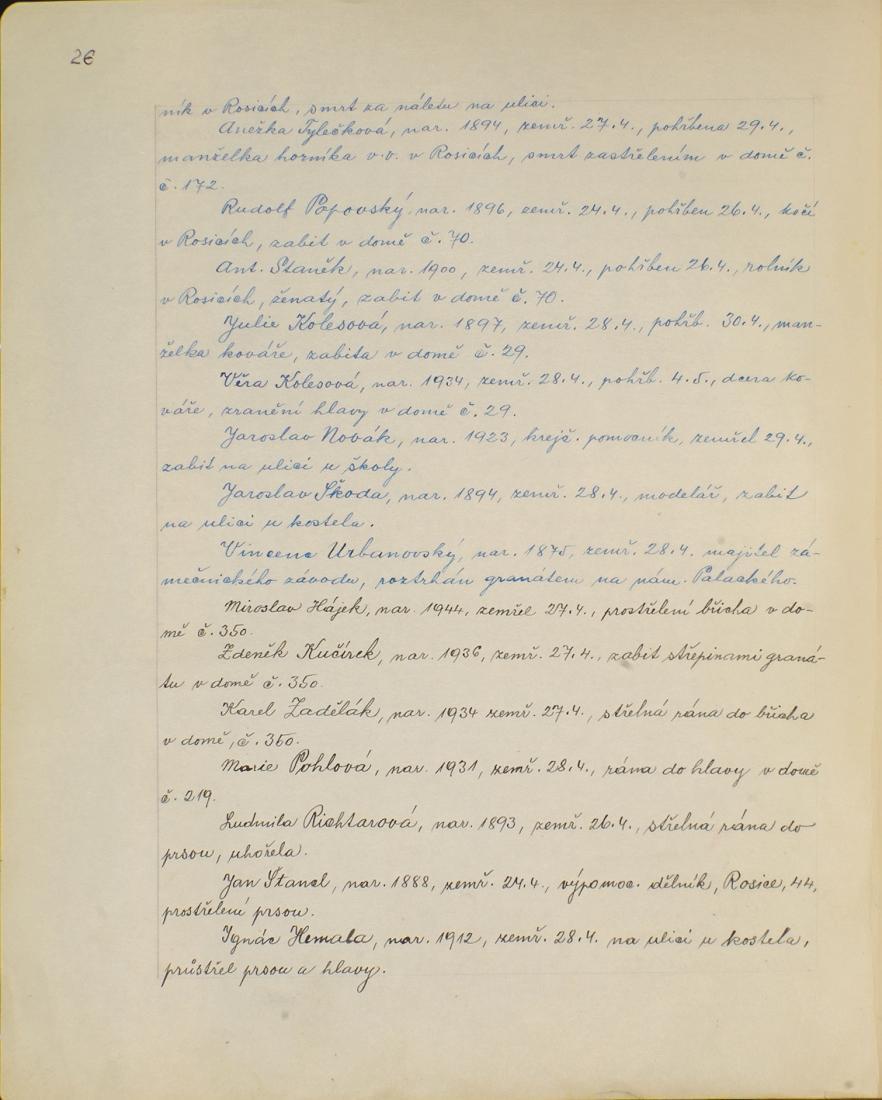 26
ník v Rosicích, smrt za náletu na ulici.
Anežka Tylečková, nar. 1894, zemř. 27.4., pohřbena 29.4.,
manželka horníka v.v. v Rosicích, smrt zastřelením v domě č.
č. 172.
Rudolf Popovský nar. 1896, zemř. 24.4., pohřben 26.4., kočí
v Rosicích, zabit v domě č. 70.
Ant. Staněk, nar. 1900, zemř. 24.4., pohřben 26.4., rolník
v Rosicích, ženatý, zabit v domě č. 70.
Julie Kolesová, nar. 1897, zemř. 28.4., pohřb. 30.4., man-
želka kováře, zabita v domě č. 29.
Věra Kolesová, nar. 1934, zemř. 28.4., pohřb. 4.5., dcera ko-
váře, zranění hlavy v domě č. 29.
Jaroslav Novák, nar. 1923, krejč. pomocník, zemřel 29.4.,
zabit na ulici u školy.
Jaroslav Škoda, nar. 1894, zemř. 28.4., modelář, zabit
na ulici u kostela.
Vincenc Urbanovský, nar. 1875, zemř. 28.4. majitel zá-
mečnického závodu, roztrhán granátem na nám. Palackého.
Miroslav Hájek, nar. 1944, zemřel 27.4., prostřelení břicha v do-
mě č. 350.
Zdeněk Kučírek, nar. 1936, zemř. 27.4., zabit střepinami graná-
tu v domě č. 350.
Karel Zadělák, nar. 1934 zemř. 27.4., střelná rána do břicha
v domě, č. 350.
Marie Pohlová, nar. 1931, zemř. 28.4., rána do hlavy v domě
č. 219.
Ludmila Richtarová, nar. 1893, zemř. 26.4., střelná rána do
prsou, uhořela.
Jan Štancl, nar. 1888, zemř. 24.4., výpomoc. dělník, Rosice, 44,
prostřelení prsou.
Ignác Hemala, nar. 1912, zemř. 28.4. na ulici u kostela,
průstřel prsou a hlavy.